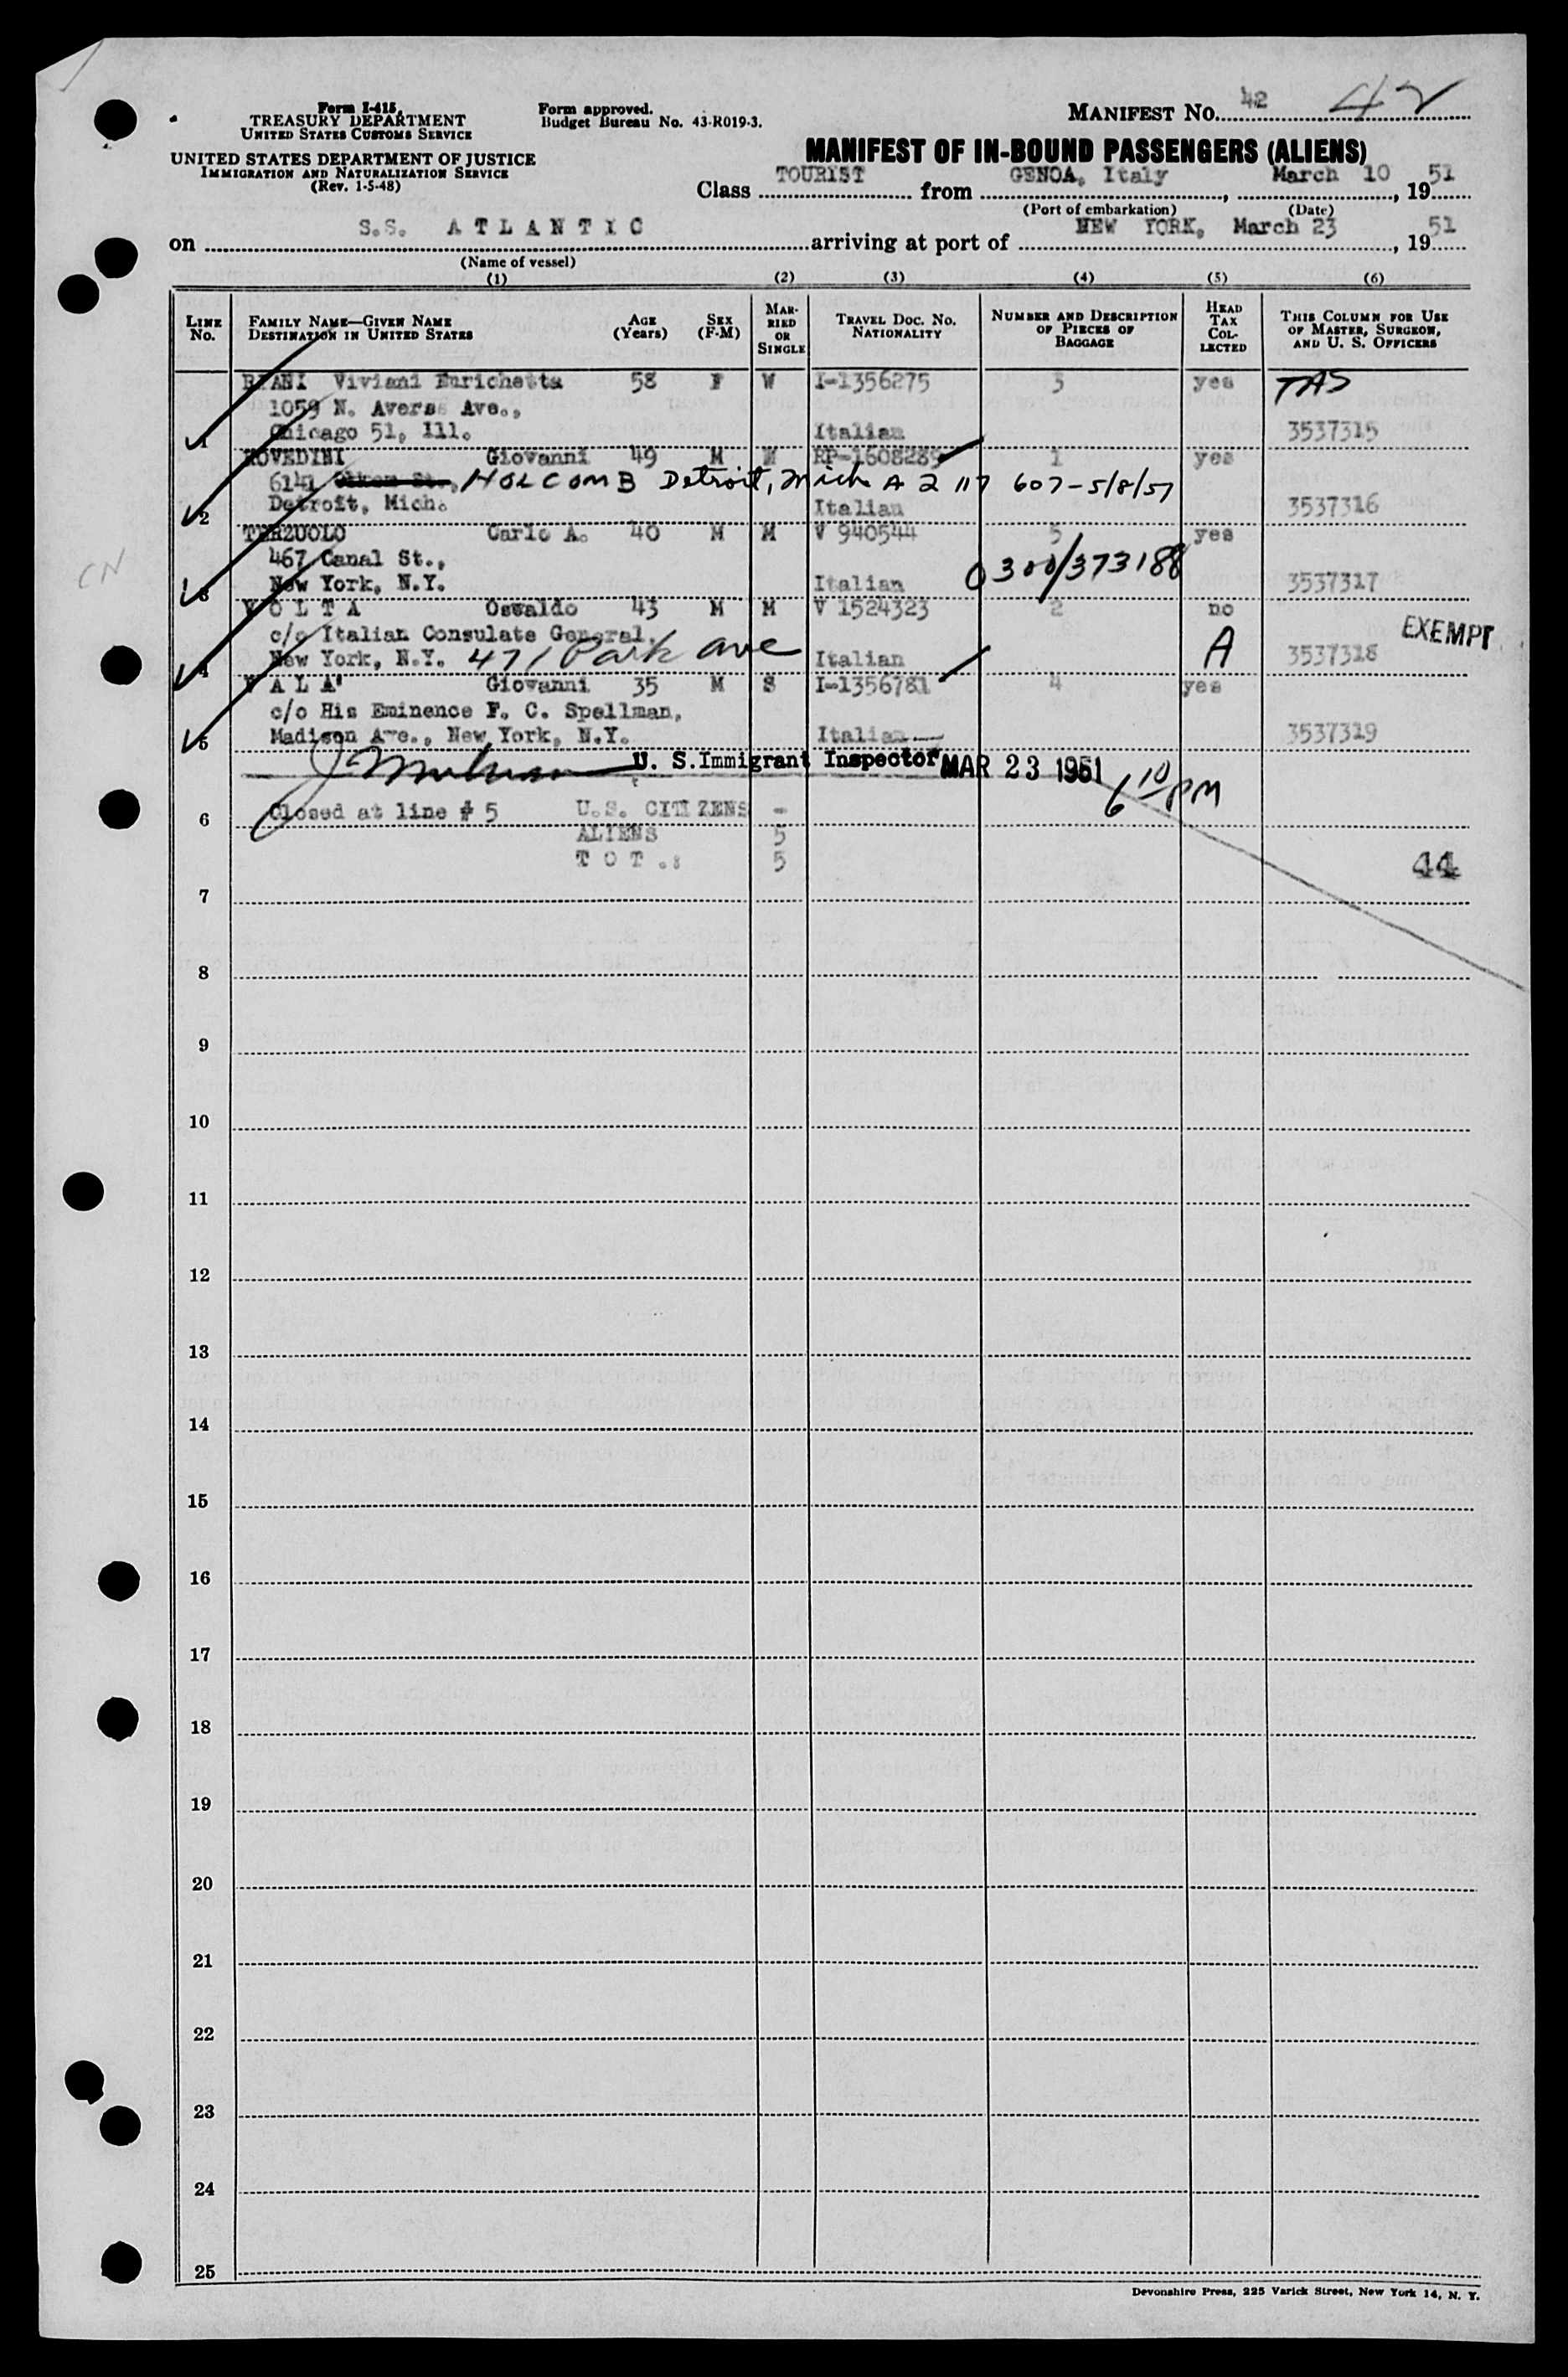 Form I-415
TREASURY DEPARTMENT
UNITED STATES CUSTOMS SERVICE
UNITED STATES DEPARTMENT OF JUSTICE
IMMIGRATION AND NATURALIZATION SERVICE
(Rev. 1-5-48)
Form approved.
Budget Bureau No. 43-R019-3.
MANIFEST No. 42 42
MANIFEST OF IN-BOUND PASSENGERS (ALIENS)
Class TOURIST from GENOA, Italy, March 10, 1951
(Port of embarkation) (Date)
on S.S. ATLANTIC arriving at port of NEW YORK, March 23, 1951
(Name of vessel)
(1) (2) (3) (4) (5) (6)
LINE No.
FAMILY NAME—GIVEN NAME
DESTINATION IN UNITED STATES
AGE (Years)
SEX (F-M)
MAR-RIED OR SINGLE
TRAVEL DOC. No.
NATIONALITY
NUMBER AND DESCRIPTION OF PIECES OF BAGGAGE
HEAD TAX COL-LECTED
THIS COLUMN FOR USE OF MASTER, SURGEON, AND U. S. OFFICERS
Viviani Enrichetta 58 F W I-1356275 3 yes TAS
1059 N. Avers Ave.,
1 Chicago 51, Ill. Italian 3537315
ROVEDINI Giovanni 49 M RP-1608289 1 yes
6141 HOLCOMB Detroit, Mich A 2 117 607-5/8/57
2 Detroit, Mich. Italian 3537316
TERZUOLO Carlo A. 40 M M V 940544 5 yes
467 Canal St., 0300/373188
CN
3 New York, N.Y. Italian 3537317
VOLTA Oswaldo 43 M M V 1524323 2 no
c/o Italian Consulate General, A EXEMPT
4 New York, N.Y. 471 Park ave Italian 3537318
VALA' Giovanni 35 M S I-1356781 4 yes
c/o His Eminence F. C. Spellman,
5 Madison Ave., New York, N.Y. Italian 3537319
U. S. Immigrant Inspector MAR 23 1951 6 10 PM
6 Closed at line # 5 U.S. CITIZENS -
ALIENS 5
TOT.: 5
44
7
8
9
10
11
12
13
14
15
16
17
18
19
20
21
22
23
24
25
Devonshire Press, 225 Varick Street, New York 14, N. Y.